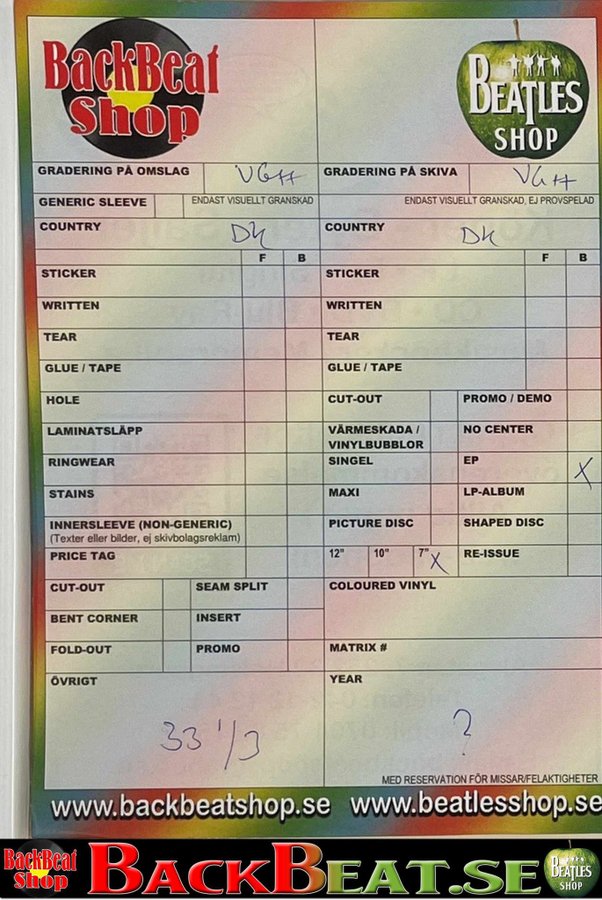 BackBeat Shop
BEATLES SHOP
GRADERING PÅ OMSLAG VG++
GRADERING PÅ SKIVA VG++
GENERIC SLEEVE
ENDAST VISUELLT GRANSKAD
ENDAST VISUELLT GRANSKAD, EJ PROVSPELAD
COUNTRY DK
COUNTRY DK
F B
F B
STICKER
STICKER
WRITTEN
WRITTEN
TEAR
TEAR
GLUE / TAPE
GLUE / TAPE
HOLE
CUT-OUT
PROMO / DEMO
LAMINATSLÄPP
VÄRMESKADA /
VINYLBUBBLOR
NO CENTER
RINGWEAR
SINGEL
EP X
STAINS
MAXI
LP-ALBUM
INNERSLEEVE (NON-GENERIC)
(Texter eller bilder, ej skivbolagsreklam)
PICTURE DISC
SHAPED DISC
PRICE TAG
12" 10" 7" X
RE-ISSUE
CUT-OUT
SEAM SPLIT
COLOURED VINYL
BENT CORNER
INSERT
FOLD-OUT
PROMO
MATRIX #
ÖVRIGT
YEAR
33 1/3
?
MED RESERVATION FÖR MISSAR/FELAKTIGHETER
www.backbeatshop.se www.beatlesshop.se
BackBeat Shop BACKBEAT.SE BEATLES SHOP